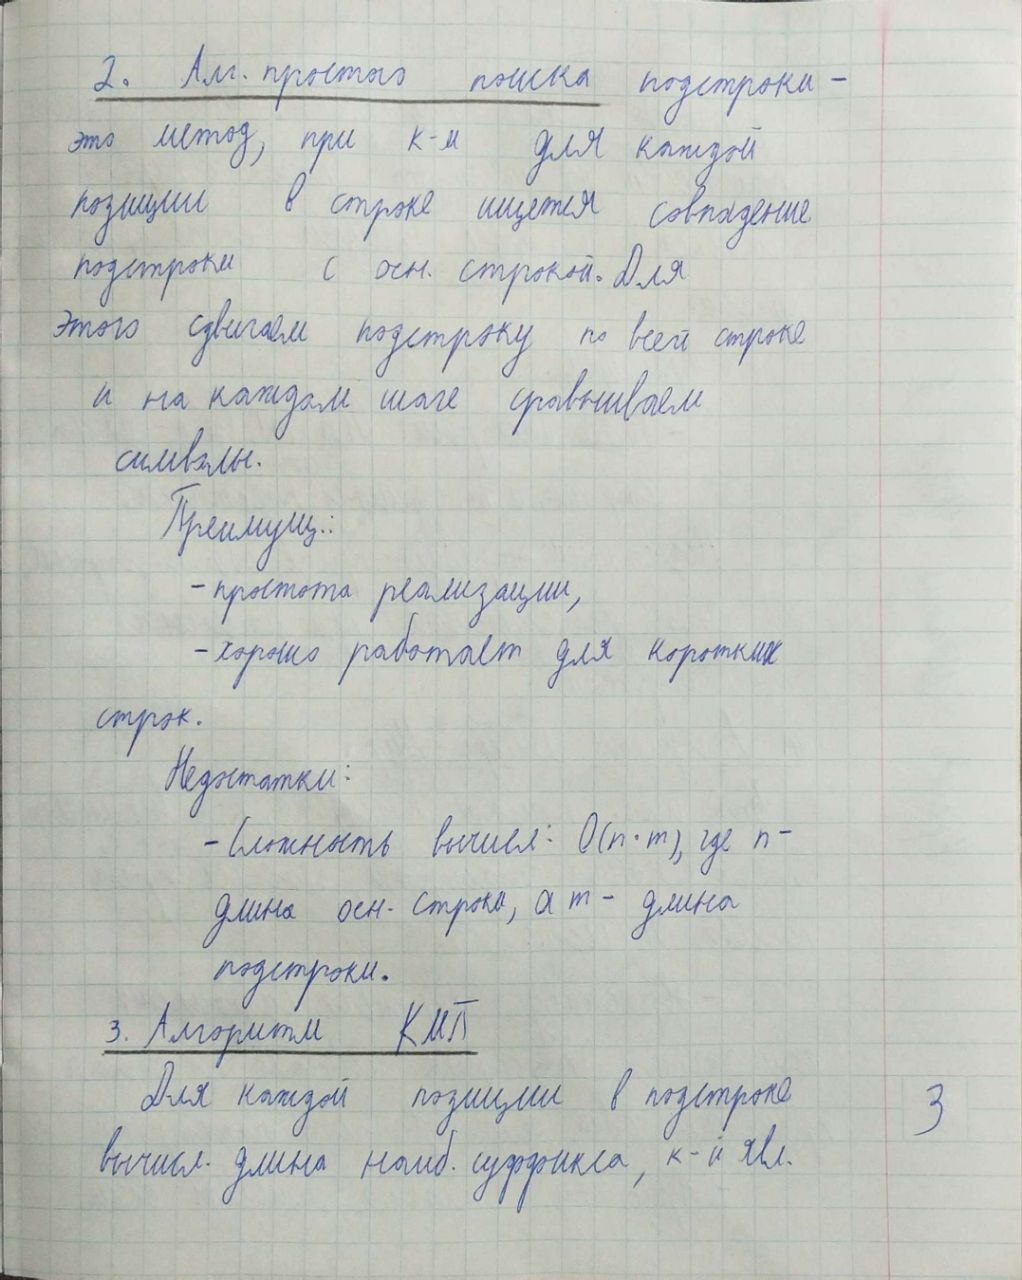 2. Алг. простого поиска подстроки –
это метод, при к-м для каждой
позиции в строке ищется совпадение
подстроки с осн. строкой. Для
этого сдвигаем подстроку по всей строке
и на каждом шаге сравниваем
символы.
Преимущ.:
- простота реализации,
- хорошо работает для коротких
строк.
Недостатки:
- Сложность вычисл: O(n·m), где n –
длина осн. строки, а m – длина
подстроки.
3. Алгоритм КМП
Для каждой позиции в подстроке
вычисл. длина наиб. суффикса, к-й явл.
3